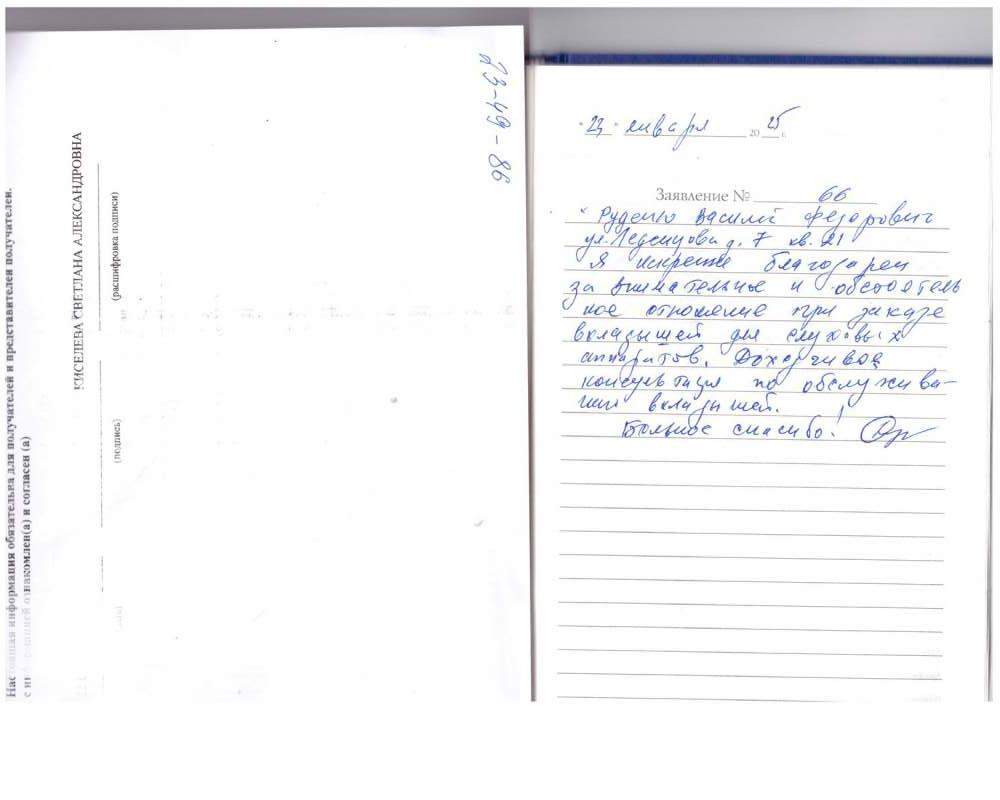 Настоящая информация обязательна для получателей и представителей получателей.
ознакомлен(а) и согласен (а)
КИСЕЛЕВА СВЕТЛАНА АЛЕКСАНДРОВНА
(подпись) (расшифровка подписи)
23-49-86
"23" января 2025 г.
Заявление № 66
Руденко Василий Федорович
ул. д. 7 кв. 21
Я искренне благодарен
за внимательное и обстоятель
ное отношение при заказе
вкладышей для слуховых
аппаратов. Доходчивая
консультация по обслужива-
нию вкладышей.
Большое спасибо!